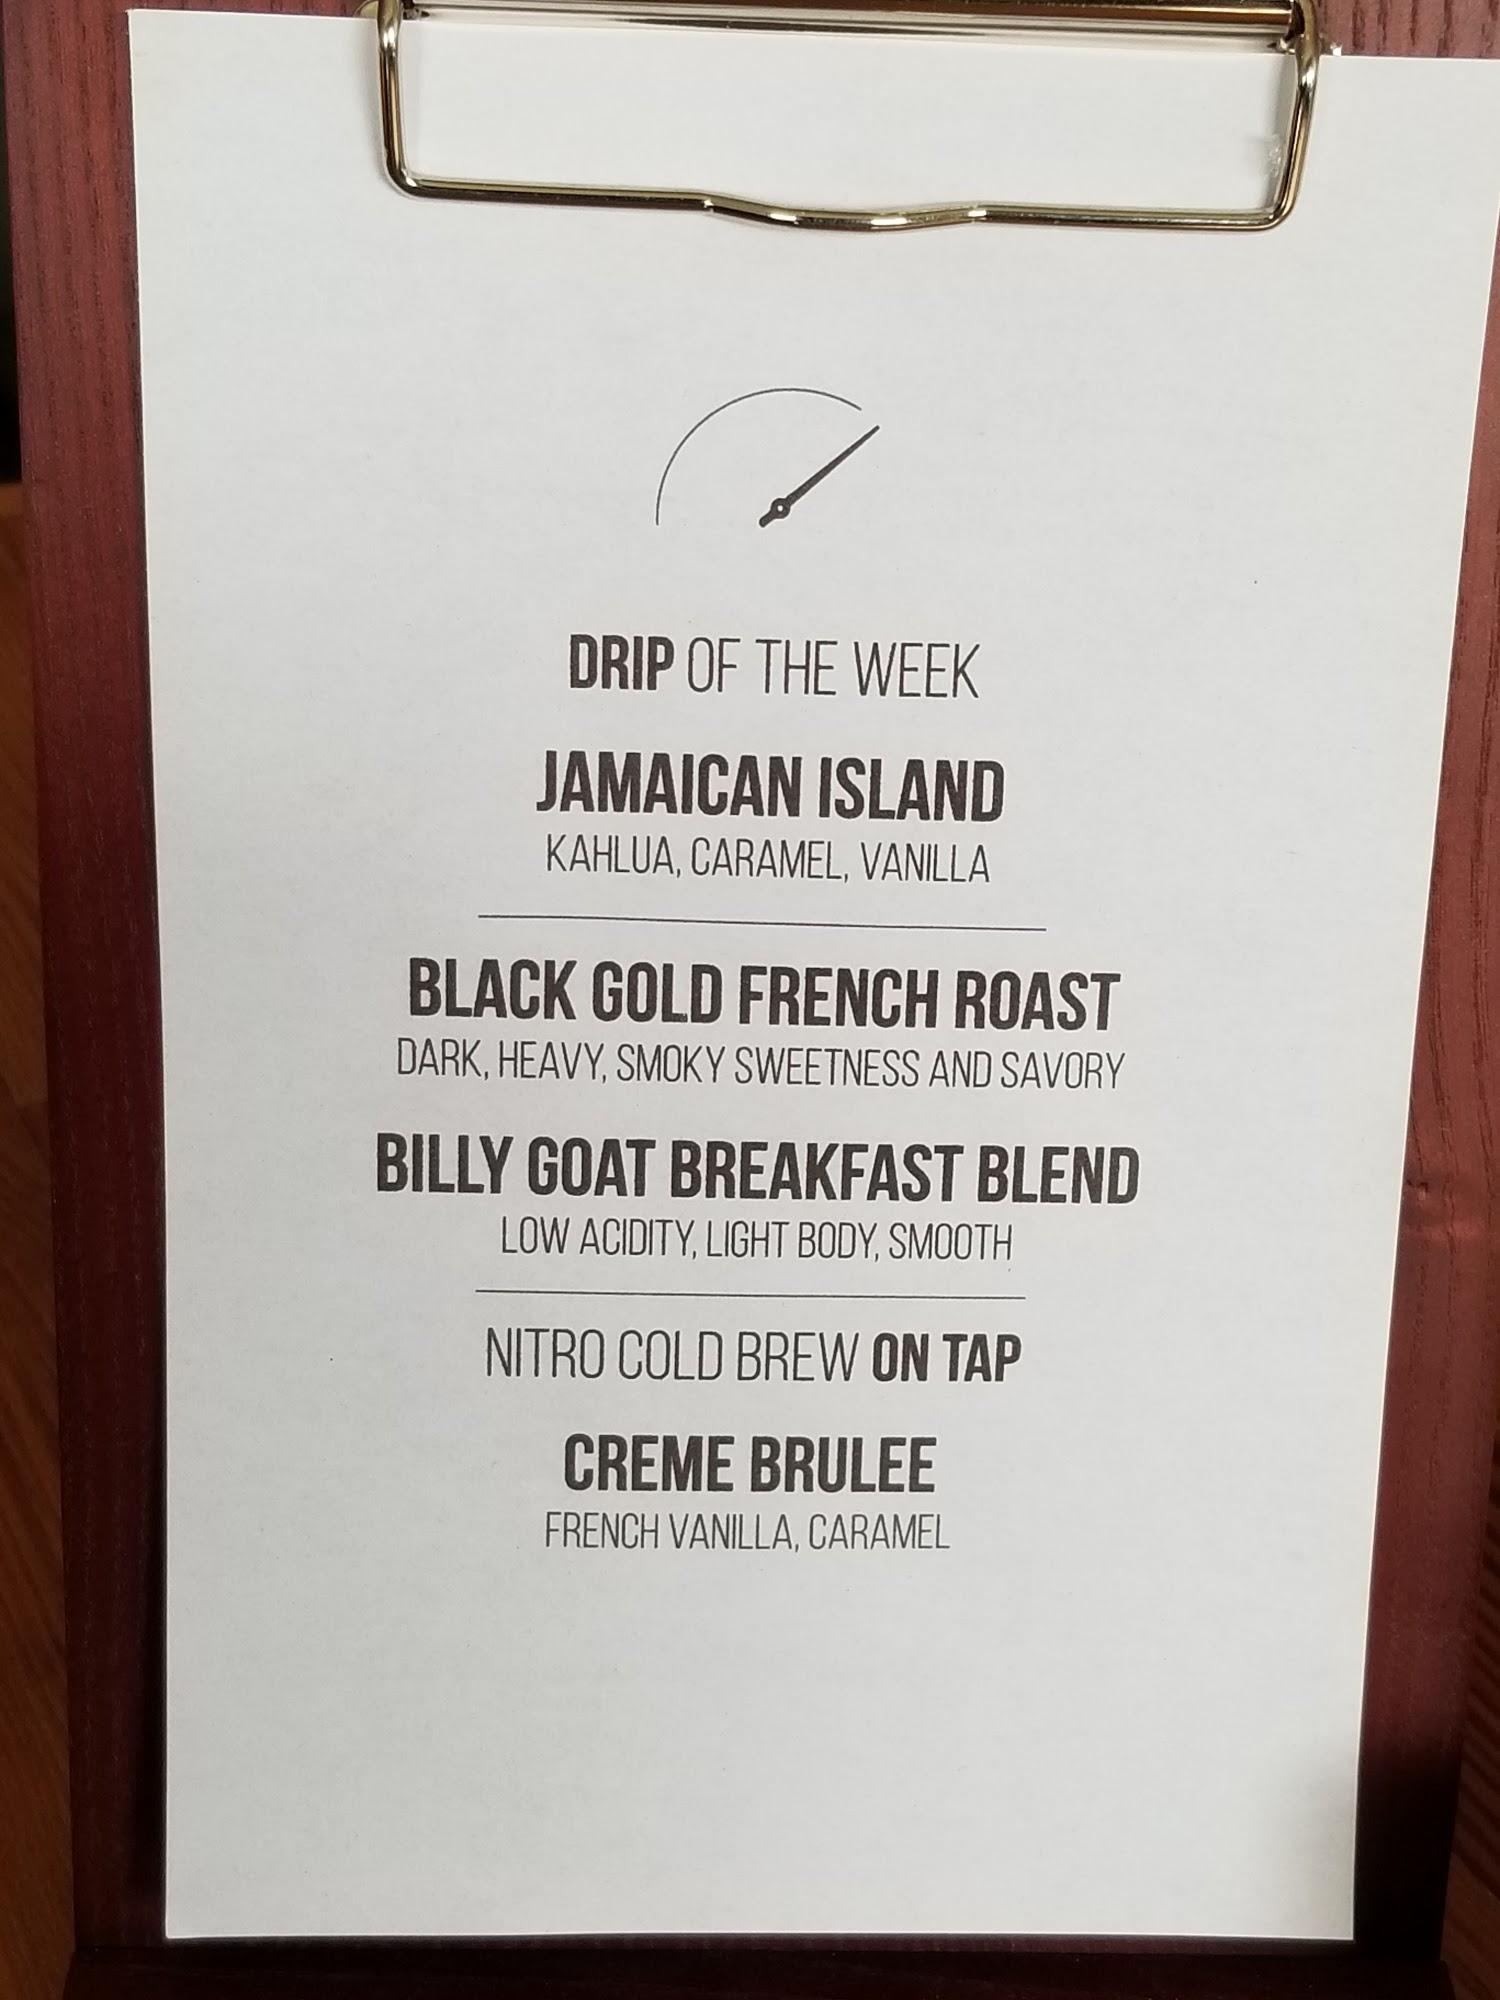 DRIP OF THE WEEK
JAMAICAN ISLAND
KAHLUA, CARAMEL, VANILLA
BLACK GOLD FRENCH ROAST
DARK, HEAVY, SMOKY SWEETNESS AND SAVORY
BILLY GOAT BREAKFAST BLEND
LOW ACIDITY, LIGHT BODY, SMOOTH
NITRO COLD BREW ON TAP
CREME BRULEE
FRENCH VANILLA, CARAMEL